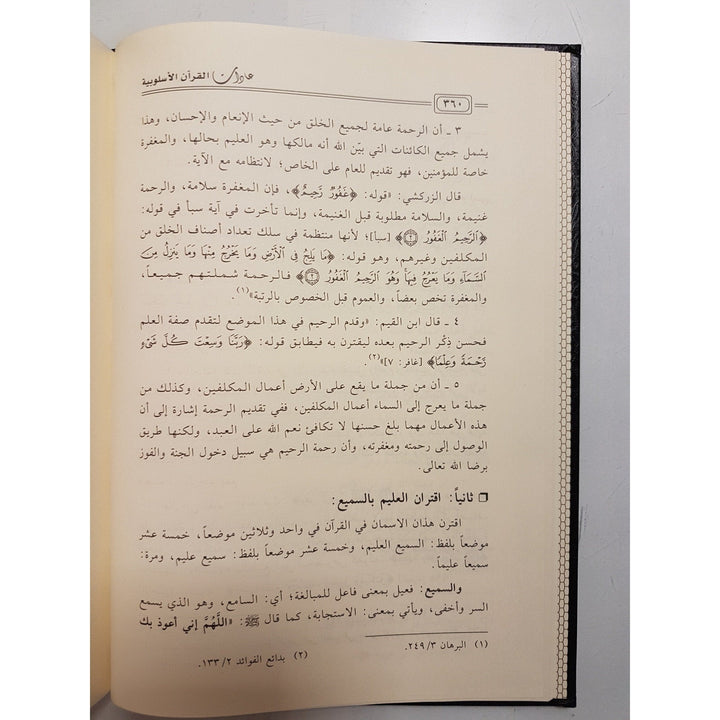 عادات القرآن الأسلوبية
٣٦٠
٣ ـ أن الرحمة عامة لجميع الخلق من حيث الإنعام والإحسان، وهذا
يشمل جميع الكائنات التي بيّن الله أنه مالكها وهو العليم بحالها، والمغفرة
خاصة للمؤمنين، فهو تقديم للعام على الخاص؛ لانتظامه مع الآية.
قال الزركشي: «قوله: ﴿غَفُورٌ رَّحِيمٌ﴾، فإن المغفرة سلامة، والرحمة
غنيمة، والسلامة مطلوبة قبل الغنيمة، وإنما تأخرت في آية سبأ في قوله:
﴿الرَّحِيمُ الْغَفُورُ ٢﴾ [سبأ]؛ لأنها منتظمة في سلك تعداد أصناف الخلق من
المكلفين وغيرهم، وهو قوله: ﴿مَا يَلِجُ فِي الْأَرْضِ وَمَا يَخْرُجُ مِنْهَا وَمَا يَنزِلُ مِنَ
السَّمَآءِ وَمَا يَعْرُجُ فِيهَا وَهُوَ الرَّحِيمُ الْغَفُورُ ٢﴾ فالرحمة شملتهم جميعاً،
والمغفرة تخص بعضاً، والعموم قبل الخصوص بالرتبة»(١).
٤ ـ قال ابن القيم: «وقدم الرحيم في هذا الموضع لتقدم صفة العلم
فحسن ذِكْر الرحيم بعده ليقترن به فيطابق قوله: ﴿رَبَّنَا وَسِعْتَ كُلَّ شَيْءٍ
رَّحْمَةً وَعِلْمًا﴾ [غافر: ٧]»(٢).
٥ ـ أن من جملة ما يقع على الأرض أعمال المكلفين، وكذلك من
جملة ما يعرج إلى السماء أعمال المكلفين، ففي تقديم الرحمة إشارة إلى أن
هذه الأعمال مهما بلغ حسنها لا تكافئ نعم الله على العبد، ولكنها طريق
الوصول إلى رحمته ومغفرته، وأن رحمة الرحيم هي سبيل دخول الجنة والفوز
برضا الله تعالى.
❐ ثانياً: اقتران العليم بالسميع:
اقترن هذان الاسمان في القرآن في واحد وثلاثين موضعاً، خمسة عشر
موضعاً بلفظ: السميع العليم، وخمسة عشر موضعاً بلفظ: سميع عليم، ومرة:
سميعاً عليماً.
والسميع: فعيل بمعنى فاعل للمبالغة؛ أي: السامع، وهو الذي يسمع
السر وأخفى، ويأتي بمعنى: الاستجابة، كما قال ﷺ: «اللَّهُمَّ إني أعوذ بك
(١) البرهان ٢٤٩/٣.
(٢) بدائع الفوائد ١٣٣/٢.